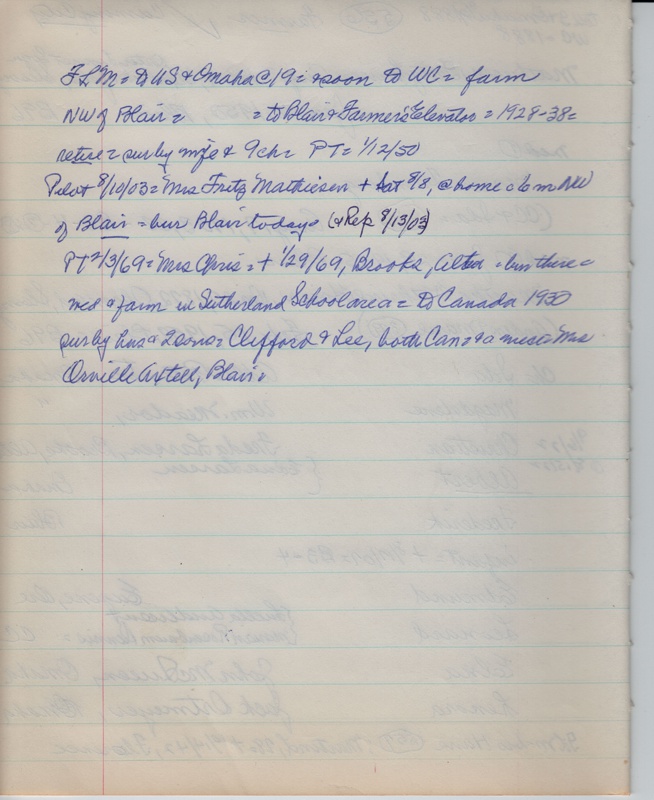 FLM = to US & Omaha @ 19 = & soon to WC = farm
NW of Blair = = to Blair & Farmer's Elevator = 1928-38 =
retire = surby wife & 9ch = PT = 1/12/50
Pilot 8/10/03 = Mrs Fritz Mathiesen + Sat 8/8, @ home 6 m NW
of Blair = bur Blair today = (& Rep 8/13/03)
PT 2/3/69 = Mrs Chris = + 1/29/69, Brooks, Alta = bur there =
med & farm in Sutherland School area = to Canada 1930
surby hus & 2 sons = Clifford & Lee, both Can = & a niece = Mrs
Orville Axtell, Blair =